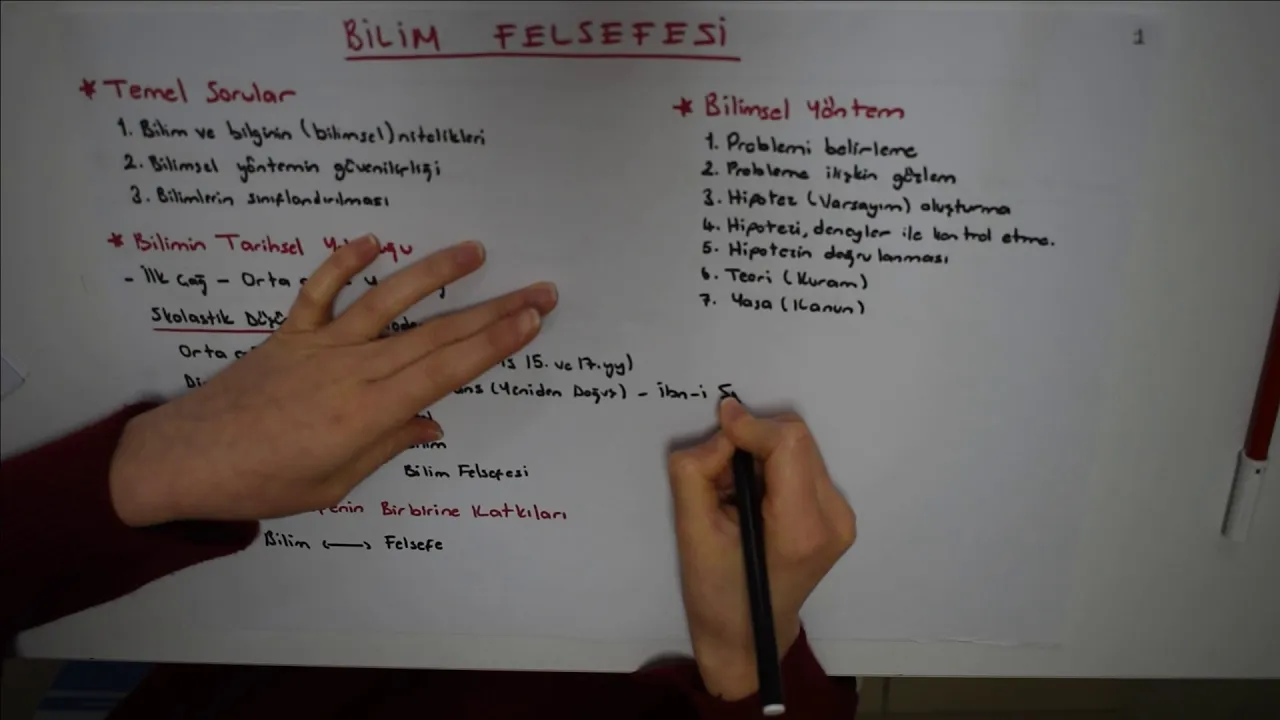 BİLİM FELSEFESİ
1
* Temel Sorular
1. Bilim ve bilginin (bilimsel) nitelikleri
2. Bilimsel yöntemin güvenilirliği
3. Bilimlerin sınıflandırılması
* Bilimin Tarihsel
- İlk Çağ - Orta
Skolastik
Orta
15. ve 17.yy)
(Yeniden Doğuş) - İbn-i
Bilim Felsefesi
Birbirine Katkıları
Bilim <-> Felsefe
* Bilimsel Yöntem
1. Problemi belirleme
2. Probleme ilişkin gözlem
3. Hipotez (Varsayım) oluşturma
4. Hipotezi, deneyler ile kontrol etme.
5. Hipotezin doğrulanması
6. Teori (Kuram)
7. Yasa (Kanun)